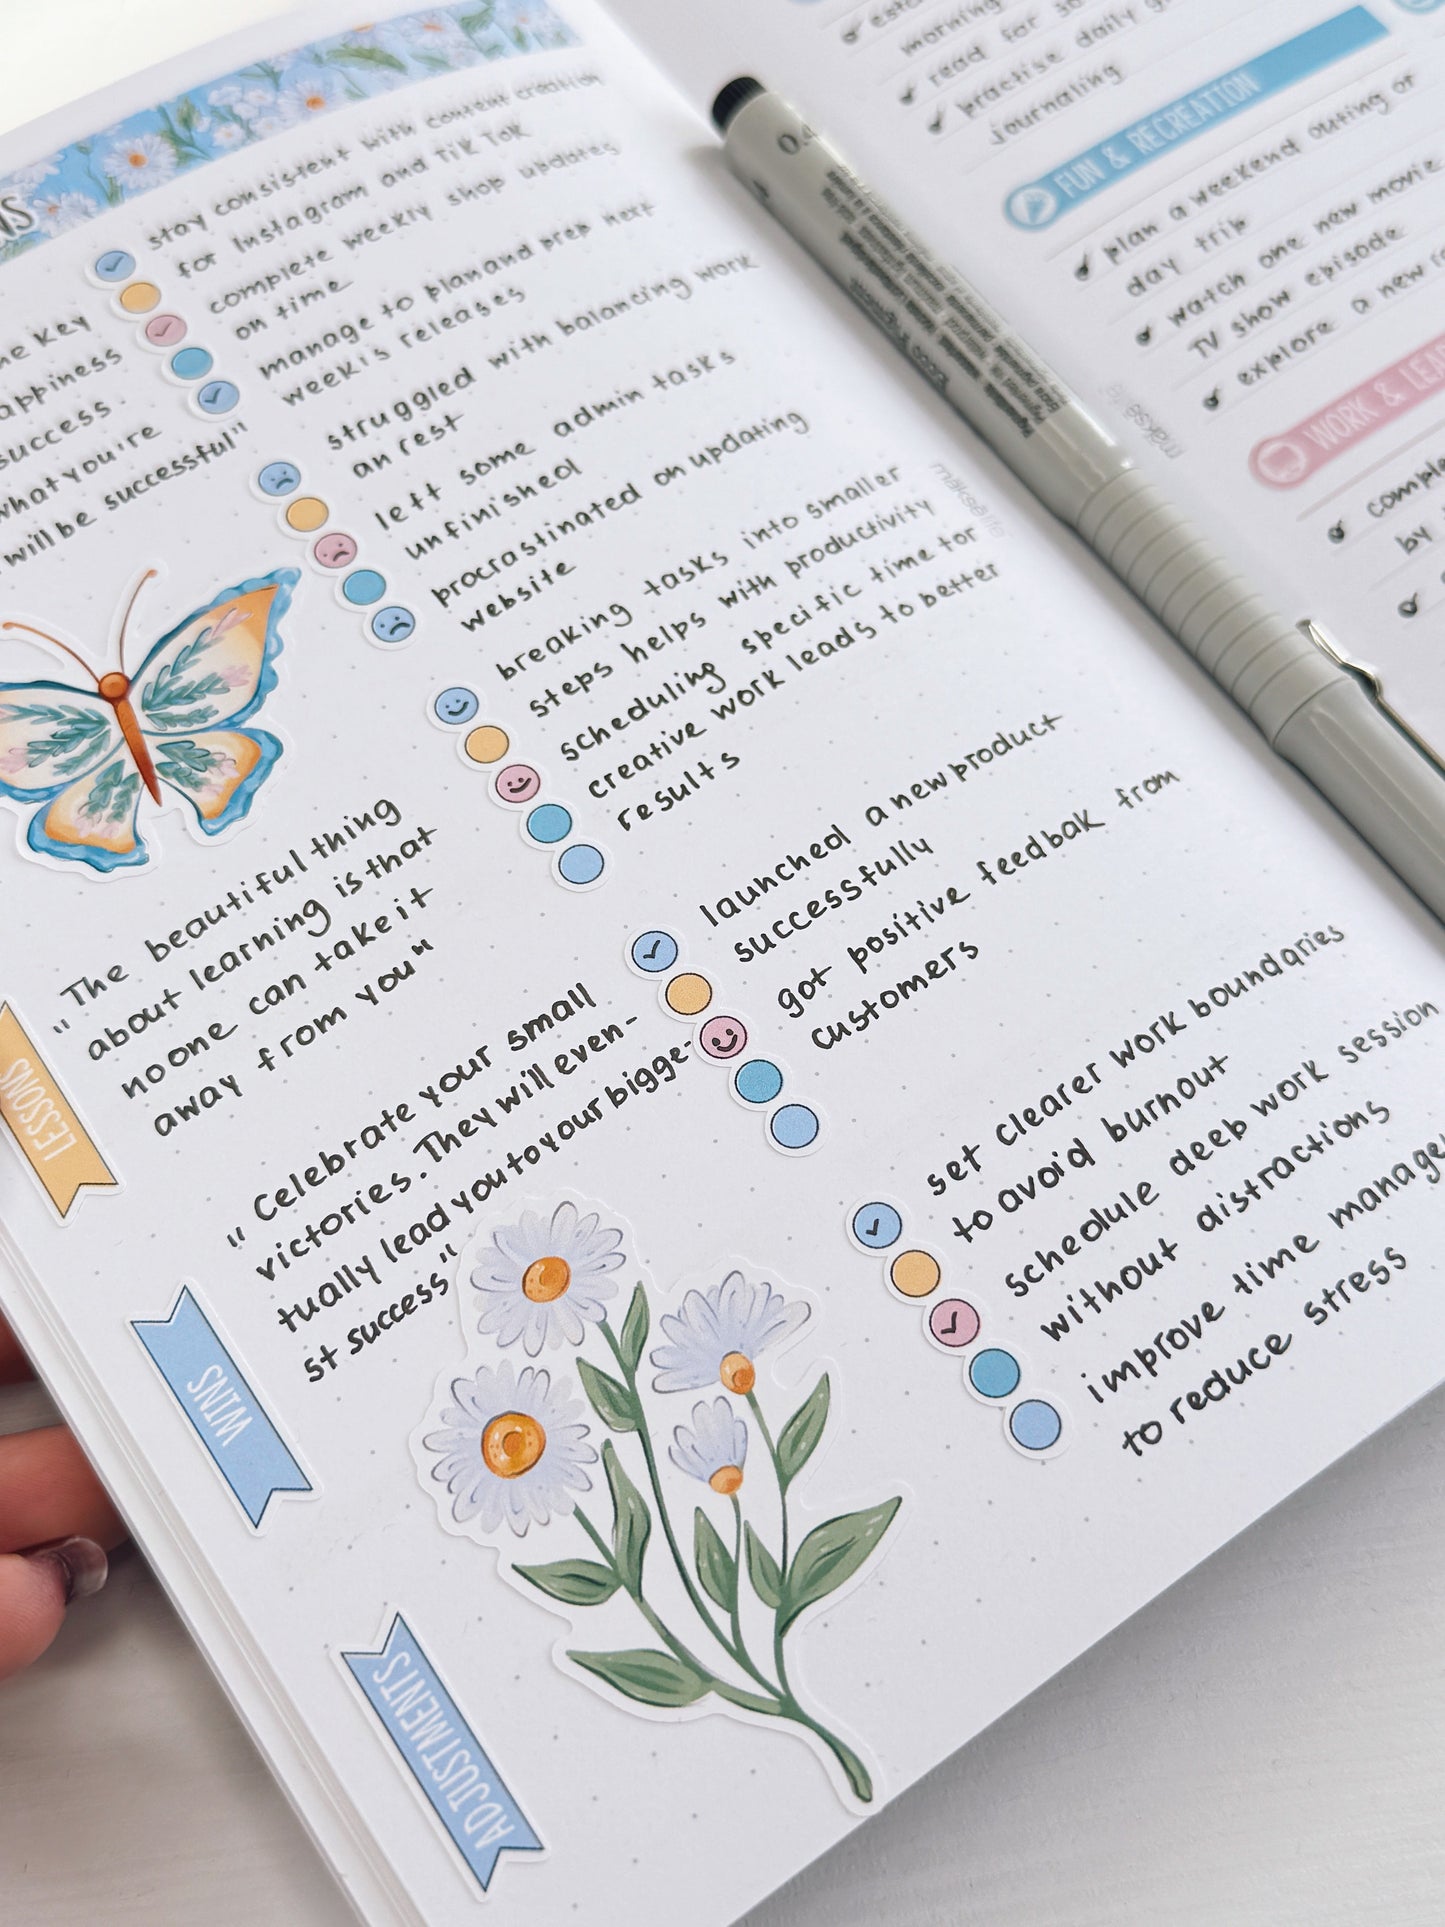 NS
stay consistent with content creation
for Instagram and TikTok
complete weekly shop updates
on time
manage to plan and prep next
week's releases
he key
appiness
success.
what you're
will be successful"
struggled with balancing work
an rest
left some admin tasks
unfinished
procrastinated on updating
website
breaking tasks into smaller
steps helps with productivity
scheduling specific time for
creative work leads to better
results
"The beautiful thing
about learning is that
no one can take it
away from you"
LESSONS
launched a new product
successfully
got positive feedbak from
customers
"Celebrate your small
victories. They will even-
tually lead you to your bigge-
st success"
WINS
set clearer work boundaries
to avoid burnout
schedule deep work session
without distractions
improve time manage
to reduce stress
ADJUSTMENTS
makselife
morning
read for 30
practise daily g
journaling
FUN & RECREATION
plan a weekend outing or
day trip
watch one new movie
TV show episode
explore a new r
WORK & LEA
comple
by
makselife